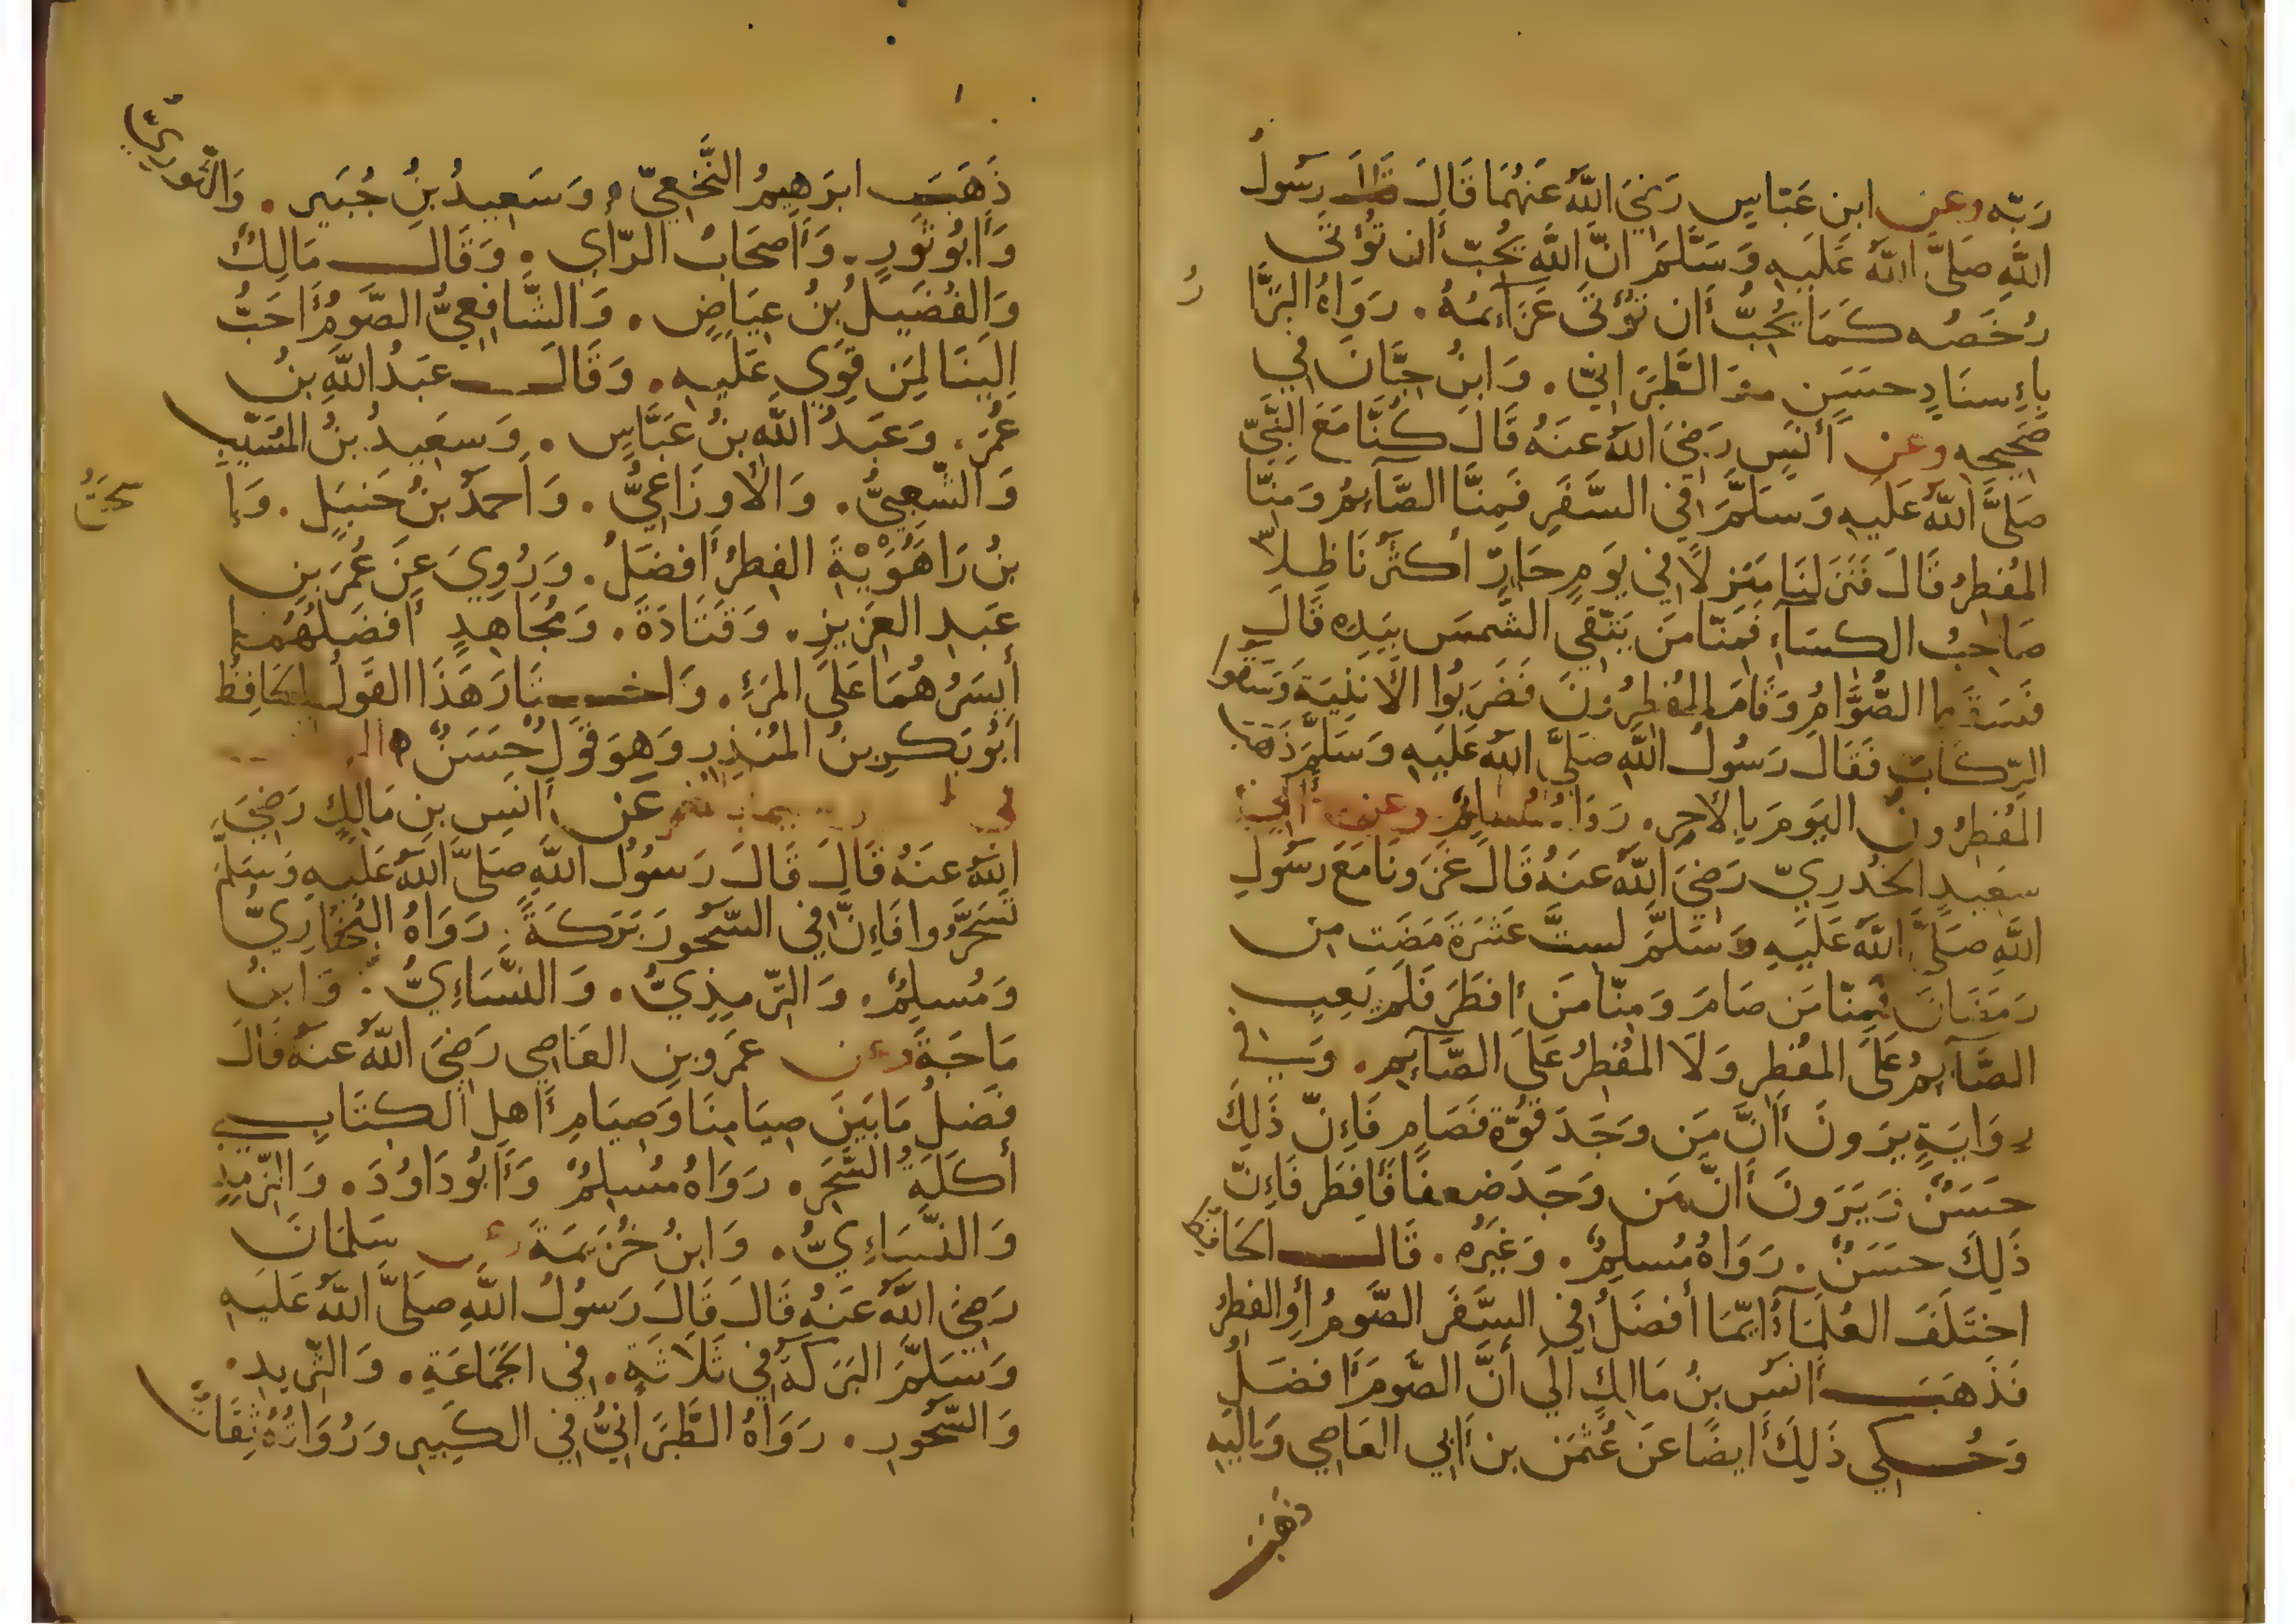 رَبّه وعن ابنِ عَبّاسٍ رَضيَ اللهُ عَنهُمَا قَالَ قَالَ رَسُولُ
اللهِ صَلَّى اللهُ عَلَيهِ وَسَلَّمَ انّ اللهَ يُحِبّ أن تُؤتَى
رُخَصُه كَمَا يُحِبُّ أن تُؤتَى عَزَآئِمُهُ . رَوَاهُ البَزَّا
رُ
بِإِسنَادٍ حسَنٍ وَالطَّبَرَانيّ . وَابنُ حِبَّانَ في
صَحِيحِه وعن أنَسٍ رَضِيَ اللهُ عنهُ قَالَ كُنَّا مَعَ النَّبِيّ
صَلَّى اللهُ عَلَيهِ وَسَلَّمَ في السَّفَرِ فَمِنَّا الصَّآئِمُ وَمِنّا
المُفطِرُ قَالَ فَنَزَلنَا مَنزِلًا في يَومٍ حَارٍّ أكثَرُنَا ظِلاًّ
صَاحِبُ الكسَاءِ فَمِنّا مَن يَتّقي الشَّمسَ بِيَدِه قَالَ
فَسَقَطَ الصُّوَّامُ وَقَامَ المُفطِرُونَ فَضَرَبُوا الأبنِيَةَ وَسَقَوا
الرّكَابَ فَقَالَ رَسُولُ اللهِ صَلَّى اللهُ عَلَيهِ وَسَلَّمَ ذَهَبَ
المُفطِرُونَ اليَومَ بِالأجرِ . رَوَاهُ مُسلِمٌ وعن أبي
سَعِيدٍ الخُدرِيّ رَضِيَ اللهُ عَنهُ قَالَ غَزَونَا مَعَ رَسُولِ
اللهِ صَلَّى اللهُ عَلَيهِ وَسَلَّمَ لِستَّ عَشرَةَ مَضَت مِن
رَمَضَانَ فَمِنّا مَن صَامَ وَمِنّا مَن أفطَرَ فَلَم يَعِب
الصَّآئِمُ عَلَى المُفطِرِ وَلَا المُفطِرُ عَلَى الصَّآئِمِ . وَفي
رِوَايَةٍ يَرَونَ أنَّ مَن وَجَدَ قُوّةً فَصَامَ فَإنّ ذَلِكَ
حسَنٌ وَيَرَونَ أنّ مَن وَجَدَ ضعفًا فَأفطَر فَإنّ
ذَلِكَ حسَنٌ . رَوَاهُ مُسلِمٌ . وَغَيرُه . قَالَ الحَافِظُ
اختَلَفَ العُلَمَآءُ أيّمَا أفضَلُ في السَّفَر الصَّومُ أوِ الفِطرُ
فَذَهَبَ أنَسُ بنُ مَالِكٍ إلَى أنَّ الصَّومَ أفضَلُ
وَحُكي ذَلِكَ أيضًا عَن عُثمَن بن أبي العَاصِي وَإلَيهِ
ذهَبَ
ذَهَبَ ابرَهِيمُ النَّخَعيّ . وَسَعِيدُ بنُ جُبَيرٍ . وَالثَّورِيّ
وَأبُو ثَورٍ . وَأصحَابُ الرّأيِ . وَقَالَ مَالِكٌ
وَالفُضَيلُ بنُ عِيَاضٍ . وَالشَّافِعِيُّ الصَّومُ أحَبُّ
إلَينَا لِمَن قَوِيَ عَلَيهِ . وَقَالَ عَبدُ اللهِ بنُ
عُمَرَ . وَعَبدُ اللهِ بنُ عَبَّاسٍ . وَسَعِيدُ بنُ المُسَيّبِ
وَالشّعبِيُّ . وَالأوزَاعِيُّ . وَأحمَدُ بنُ حَنبَلٍ . وَإ
سحَقُ
بنُ رَاهَوَيْهِ الفِطرُ أفضَلُ . وَرُوِيَ عَن عُمَرَ بنِ
عَبدِ العَزِيزِ . وَقَتَادَةَ . وَمُجَاهِدٍ أفضَلُهُمَا
أيسَرُهُمَا عَلَى المَرءِ . وَاختَارَ هَذَا القَولَ الحَافِظُ
أبُو بَكرِ بنُ المُنذِرِ وَهوَ قَولٌ حسَنٌ
عَن أنَسِ بنِ مَالِكٍ رَضِيَ
اللهُ عَنهُ قَالَ قَالَ رَسُولُ اللهِ صَلَّى اللهُ عَلَيهِ وَسَلَّمَ
تَسَحَّرُوا فَإنَّ في السّحُورِ بَرَكَةً . رَوَاهُ البُخَارِيُّ
وَمُسلِمٌ . وَالتّرمِذِيُّ . وَالنَّسَاءِيُّ . وَابنُ
مَاجَةَ وعن عَمرِو بنِ العَاصِي رَضِيَ اللهُ عنهُ قَالَ
فَضلُ مَا بَينَ صِيَامِنَا وَصِيَامِ أهلِ الكِتَابِ
أكلَةُ السَّحَرِ . رَوَاهُ مُسلِمٌ وَأبُو دَاوُدَ . وَالتّرمِذِ
يّ
وَالنَّسَاءِيُّ . وَابنُ خُزَيمَةَ وعن سَلمَانَ
رَضِيَ اللهُ عَنهُ قَالَ قَالَ رَسُولُ اللهِ صَلَّى اللهُ عَلَيهِ
وَسَلَّمَ البَرَكَةُ في ثَلَاثَةٍ . في الجَمَاعَةِ . وَالثّرِيدِ .
وَالسّحُورِ . رَوَاهُ الطَّبَرَانيُّ في الكَبِيرِ وَرُوَاتُهُ ثِقَاتٌ